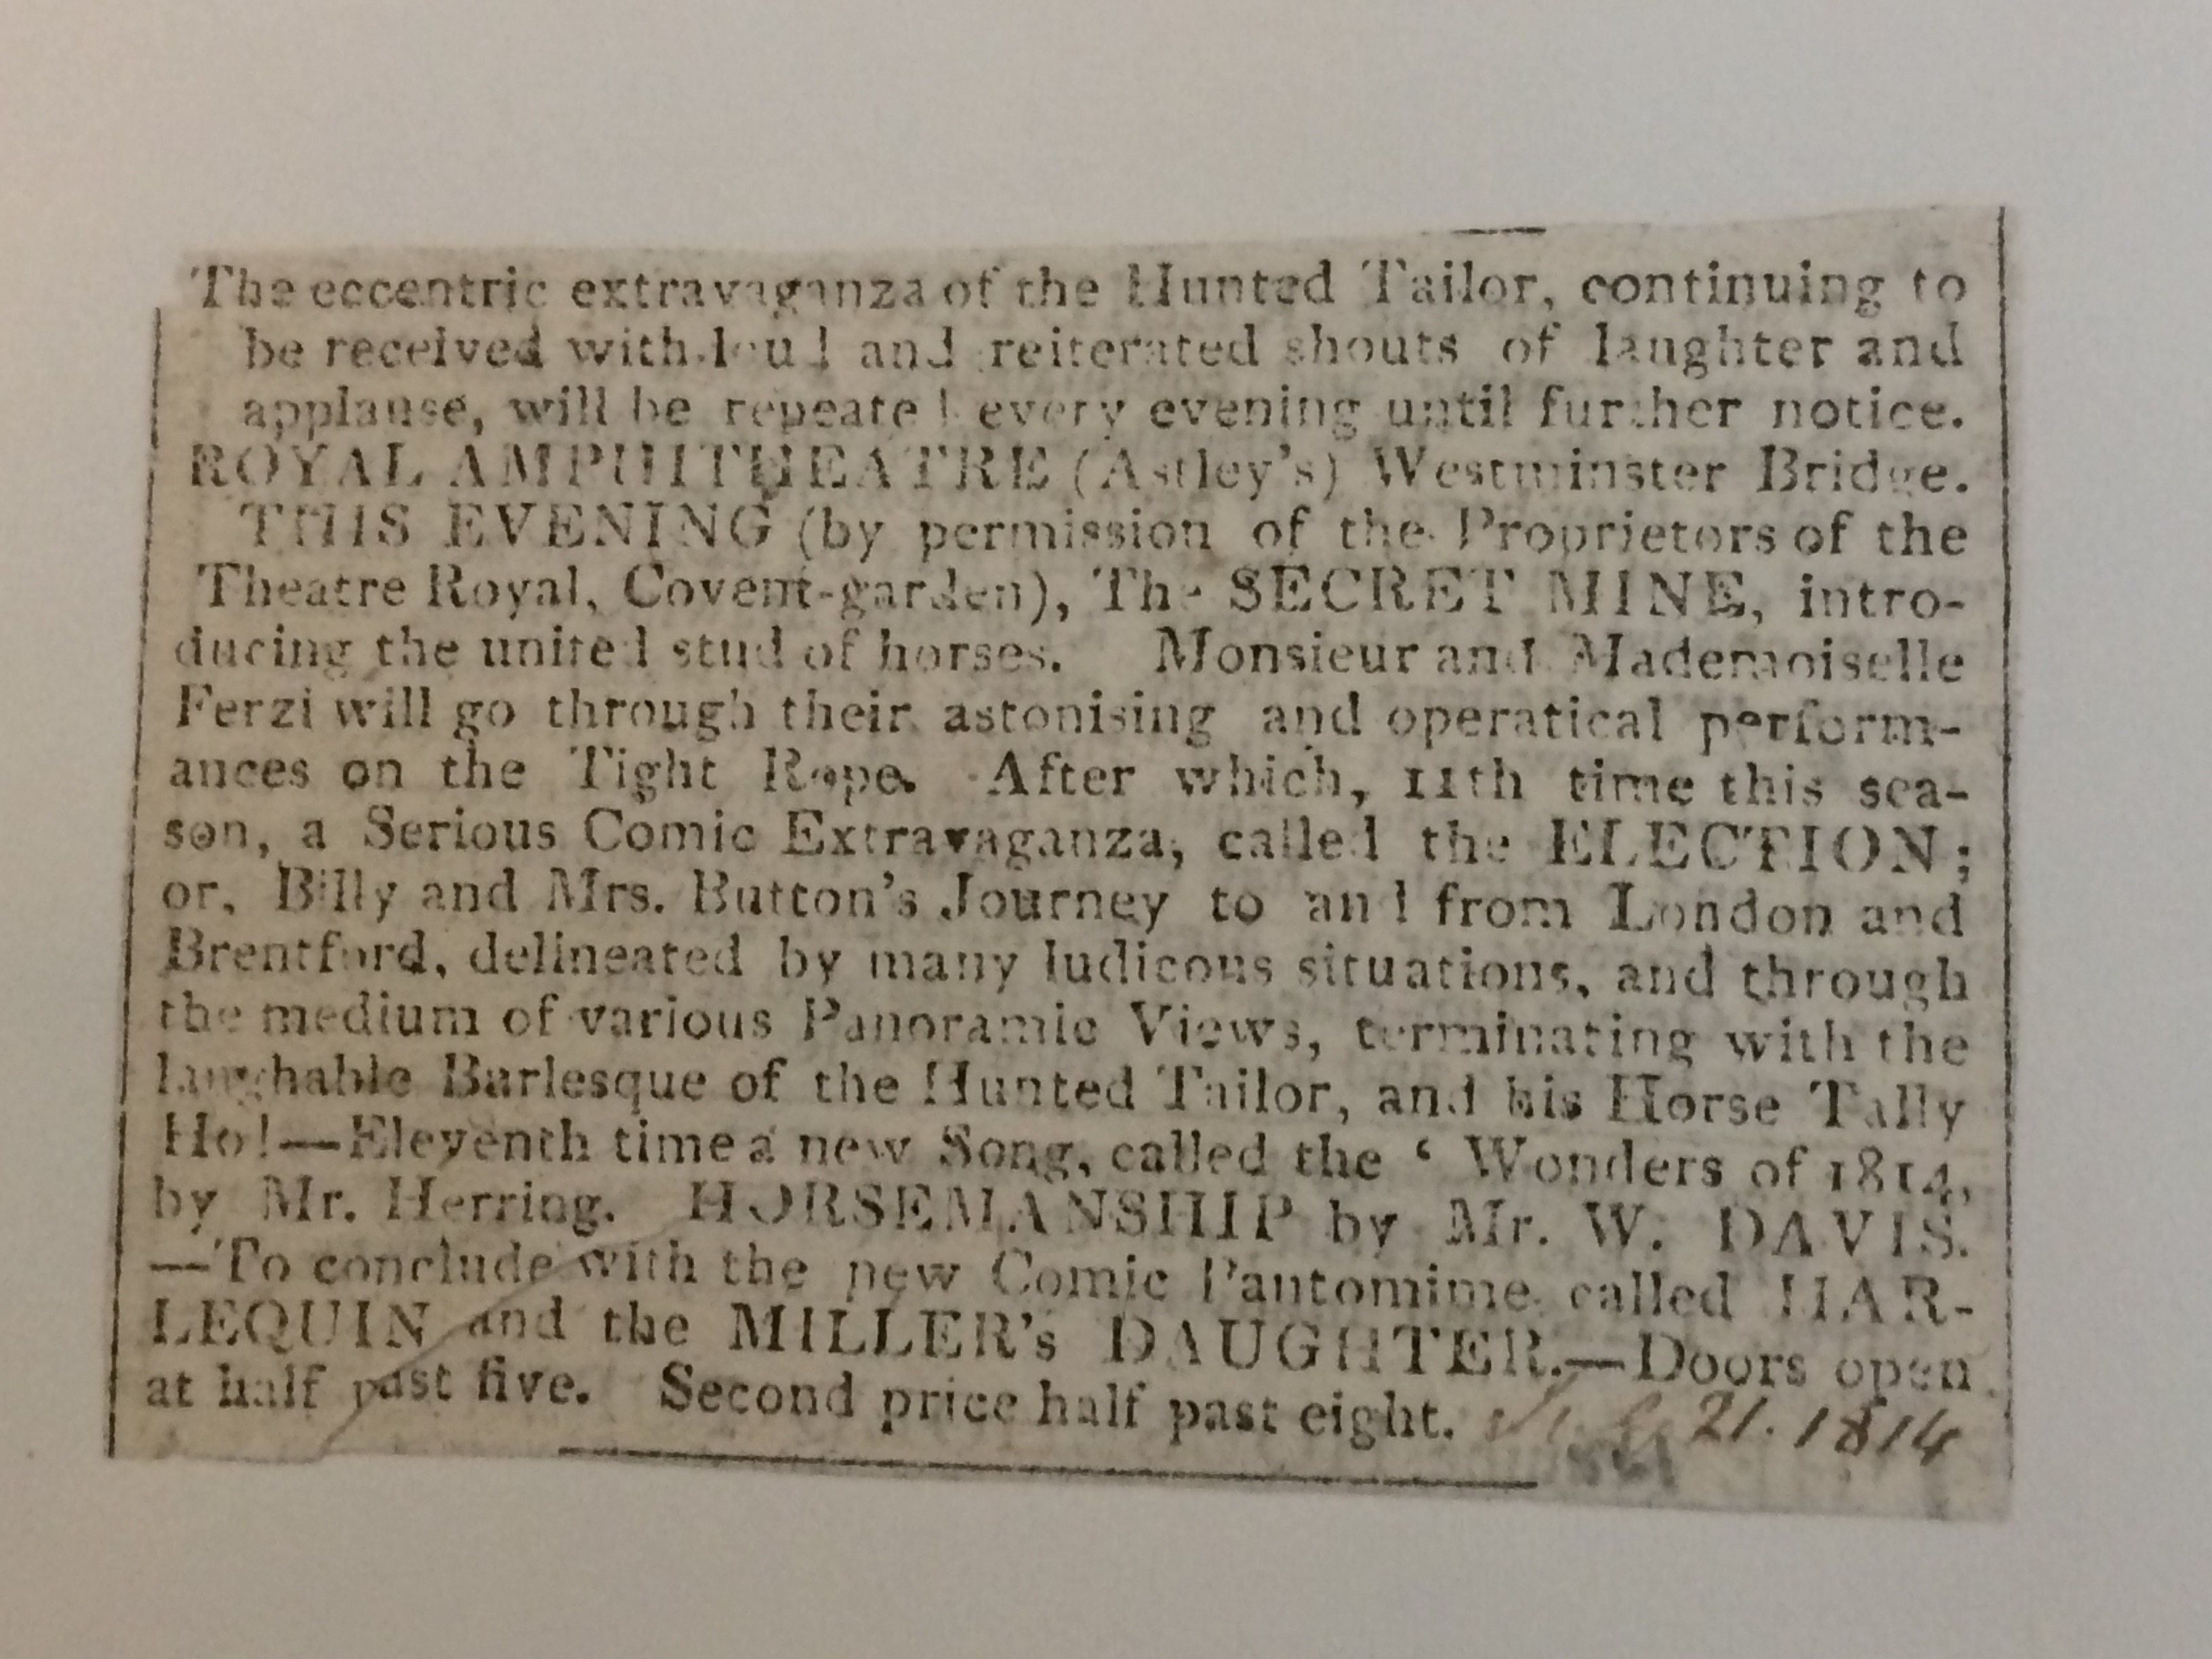 The eccentric extravaganza of the Hunted Tailor, continuing to
be received with loud and reiterated shouts of laughter and
applause, will be repeated every evening until further notice.
ROYAL AMPHITHEATRE (Astley's) Westminster Bridge.
THIS EVENING (by permission of the Proprietors of the
Theatre Royal, Covent-garden), The SECRET MINE, intro-
ducing the united stud of horses. Monsieur and Mademoiselle
Ferzi will go through their astonising and operatical perform-
ances on the Tight Rope. After which, 11th time this sea-
son, a Serious Comic Extravaganza, called the ELECTION;
or, Billy and Mrs. Button's Journey to and from London and
Brentford, delineated by many ludicous situations, and through
the medium of various Panoramic Views, terminating with the
laughable Barlesque of the Hunted Tailor, and his Horse Tally
Ho!—Eleventh time a new Song, called the ‘ Wonders of 1814,
by Mr. Herring. HORSEMANSHIP by Mr. W. DAVIS.
—To conclude with the new Comic Pantomime called HAR-
LEQUIN and the MILLER's DAUGHTER.—Doors open
at half past five. Second price half past eight.
21. 1814